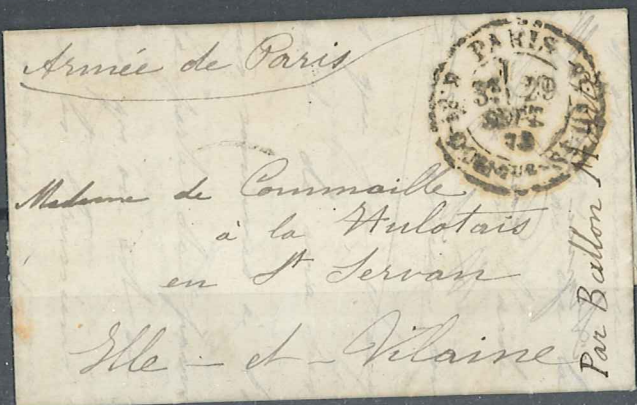 Armée de Paris
PARIS
29
SEPT.
Madame de Commaille
à la Hulotais
en St Servan
Ille - et - Vilaine
Par Ballon M